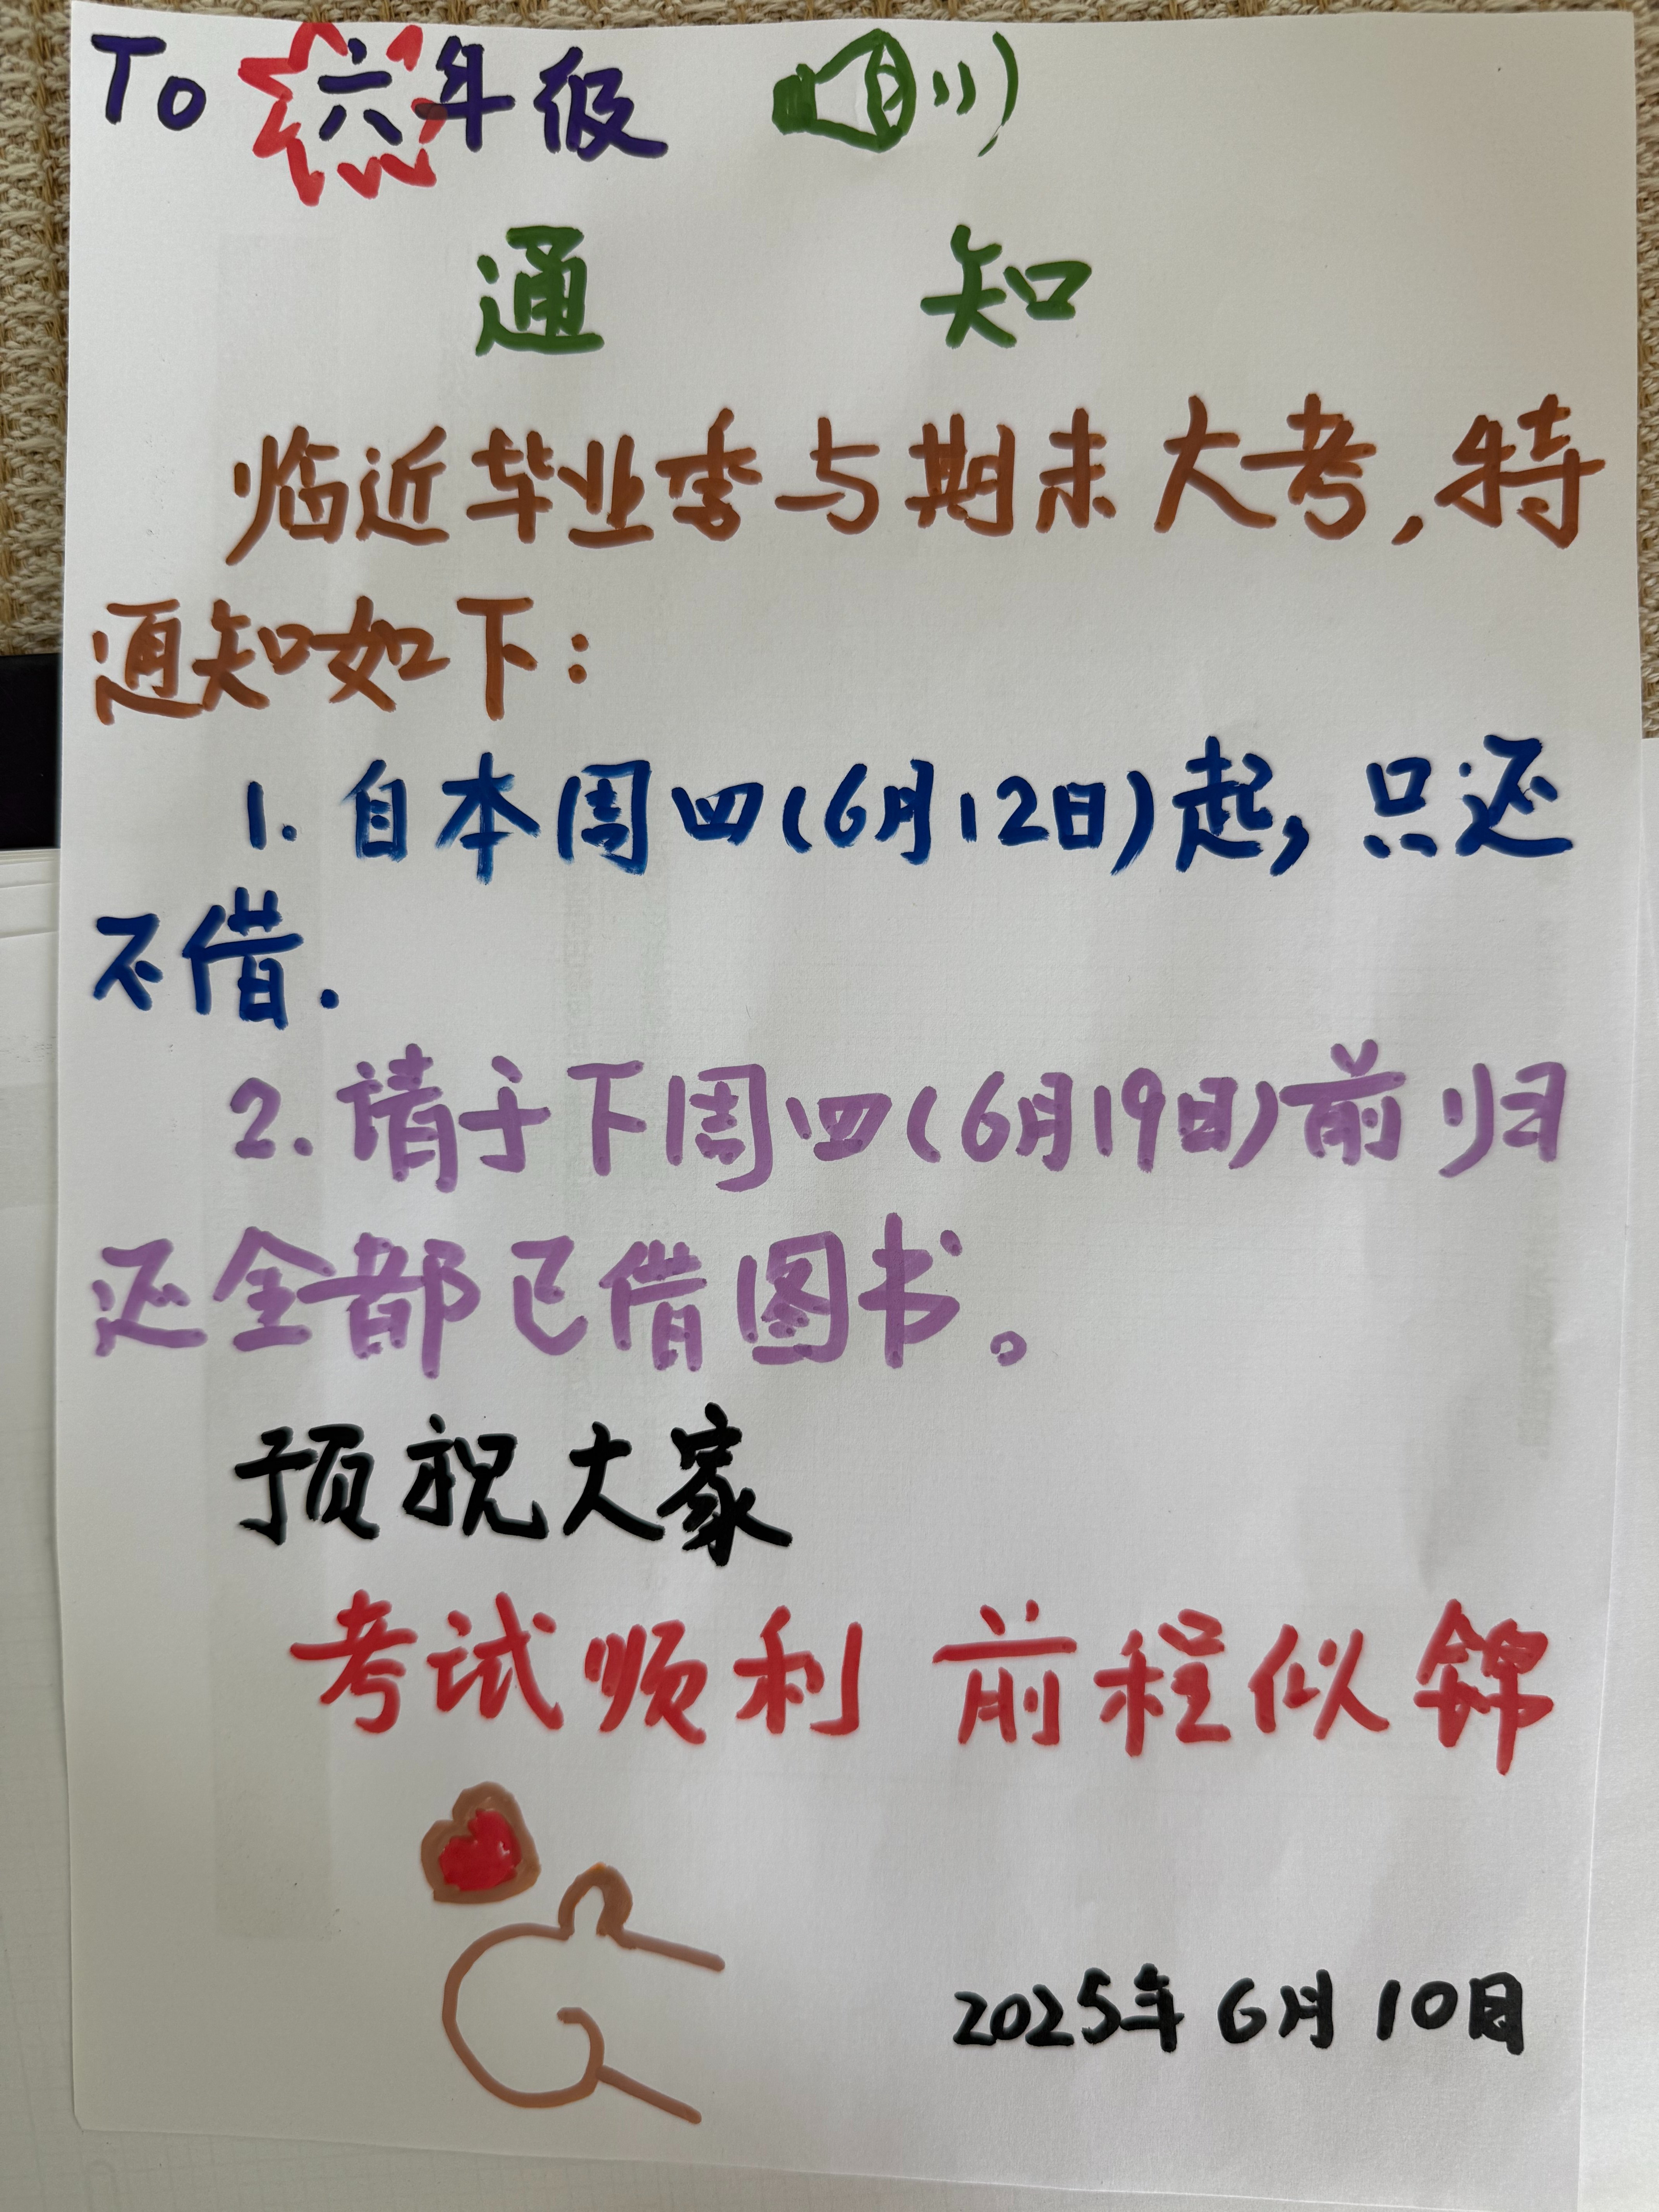 To 六年级
通 知
临近毕业季与期末大考,特
通知如下:
1. 自本周四(6月12日)起,只还
不借.
2. 请于下周四(6月19日)前归
还全部已借图书。
预祝大家
考试顺利 前程似锦
2025年6月10日